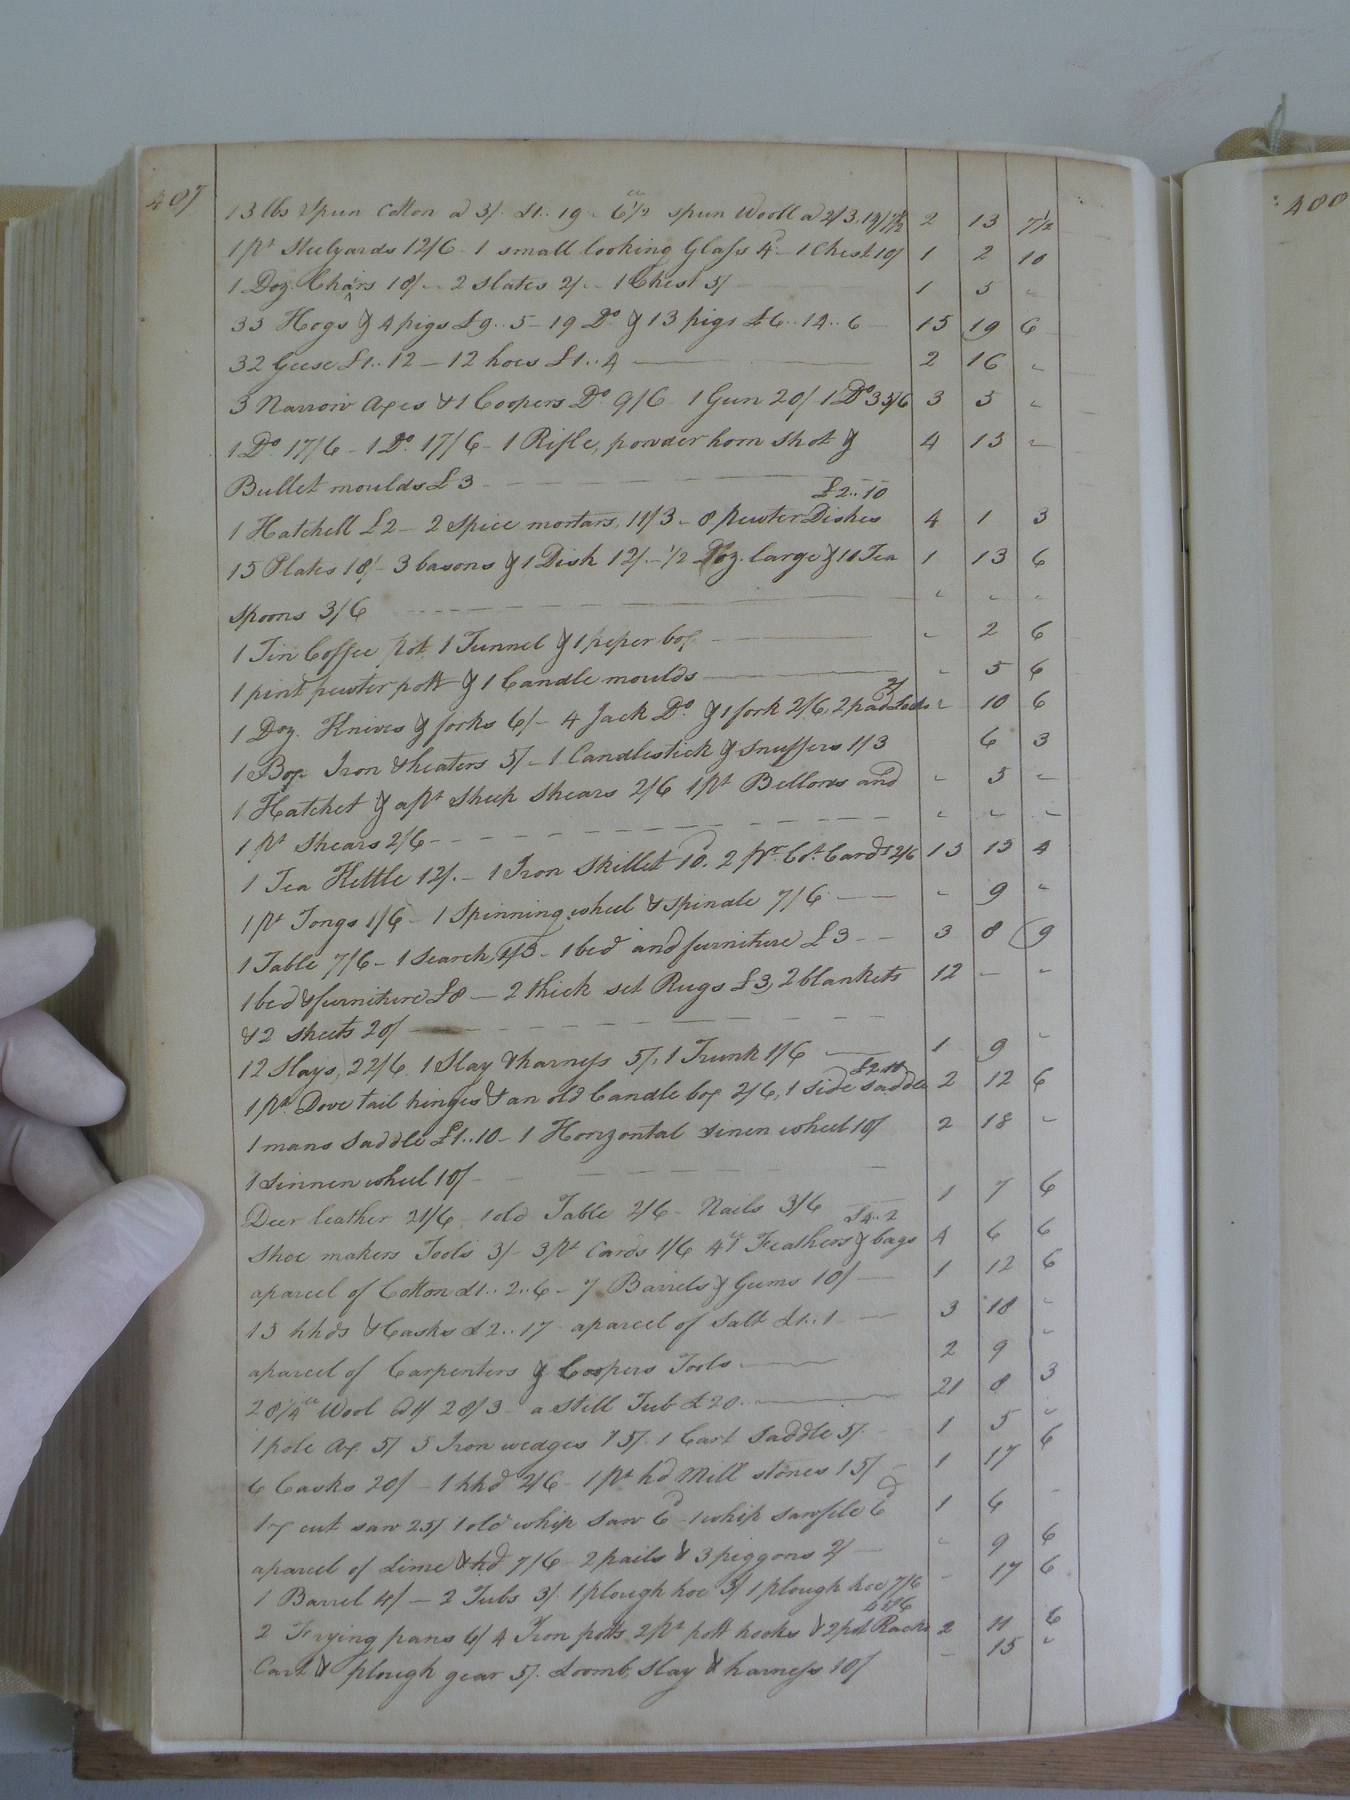 407
13 lbs Spun Cotton a 3/. £1..19 - 6 1/2 lb spun Wooll a 2/3, 14/7 1/2 2 13 7 1/2
1 pr Steelyards 12/6 - 1 small looking Glass 4d - 1 Chest 10/ 1 2 10
1 Doz. Chairs 18/ - 2 Slates 2/ - 1 Chest 5/ 1 5 "
33 Hogs & 4 pigs £9..5 - 19 Do & 13 pigs £6..14..6 15 19 6
32 Geese £1..12 - 12 hoes £1..4 2 16 "
3 Narrow Axes & 1 Coopers Do 9/6 - 1 Gun 20/ 1 Do 35/6 3 5 "
1 Do 17/6 - 1 Do 17/6 - 1 Rifle, powder horn Shot & 4 15 "
Bullet moulds £3
£2..10
1 Hatchell £2 - 2 Spice mortars, 11/3 - 8 pewter Dishes 4 1 3
15 Plates 18/ - 3 basons & 1 Dish 12/ - 1/2 Doz. large & 11 Tea 1 13 6
Spoons 3/6 " " "
1 Tin Coffee pot 1 Tunnel & 1 peper box " 2 6
1 pint pewter pott & 1 Candle moulds " 5 6
2/
1 Doz. Knives & forks 6/ - 4 Jack Do & 1 fork 2/6, 2 padlocks " 10 6
1 Box Iron & heaters 5/ - 1 Candlestick & Snuffers 1/3 6 3
1 Hatchet & a pr Sheep Shears 2/6 1 pr Bellows and " 5 "
1 pr Shears 2/6 " " "
1 Tea Kettle 12/. - 1 Iron Skillet 10d. 2 pr. Cot. Cards 2/6 13 15 4
1 pr Tongs 1/6 - 1 Spinning wheel & Spindle 7/6 " 9 "
1 Table 7/6 - 1 Search, 1/3 - 1 bed and furniture £3 3 8 9
1 bed & furniture £8 - 2 thick set Rugs £3, 2 blankets 12 - "
& 2 sheets 20/
12 Slays, 22/6 1 Slay & harness 5/, 1 Trunk 1/6 1 9 "
£2.10
1 pr Dove tail hinges & an old Candle box 2/6, 1 side Saddle 2 12 6
1 mans Saddle £1..10 - 1 Horizontal Linen wheel 10/ 2 18 "
1 Linnen wheel 10/
Deer leather 21/6 - 1 old Table 2/6 - Nails 3/6 1 7 6
£4..2
Shoe makers Tools 3/ - 3 pr Cards 1/6 Feathers & bags 4 6 6
aparcel of Cotton £1..2..6 - 7 Barrels & Gums 10/ 1 12 6
15 hhds & Casks £2..17 - aparcel of Salt £1..1 3 18 "
aparcel of Carpenters & Coopers Tools 2 9 "
28 1/4 lb Wool @ 1/ 28/3 - a Still Tub £20 21 8 3
1 pole Ax 5/ 5 Iron wedges 15/. 1 Cart Saddle 5/. 1 5 "
6 Casks 20/ - 1 hhd 2/6 - 1 pr hd Mill stones 15/ 1 17 6
1 + cut saw 25/ 1 old whip Saw 6d - 1 whip sawfile 6d 1 6 "
aparcel of Lime & hd 7/6 - 2 pails & 3 piggons 2/ " 9 6
1 Barrel 4/ - 2 Tubs 3/. 1 plough hoe 3/ 1 plough hoe 7/6 " 17 6
2 Frying pans 6/ 4 Iron potts 2 pr pott hooks & 2 pot Racks 2 11 6
Cart & plough gear 5/. Loomb, Slay & harness 10/ " 15 "
400